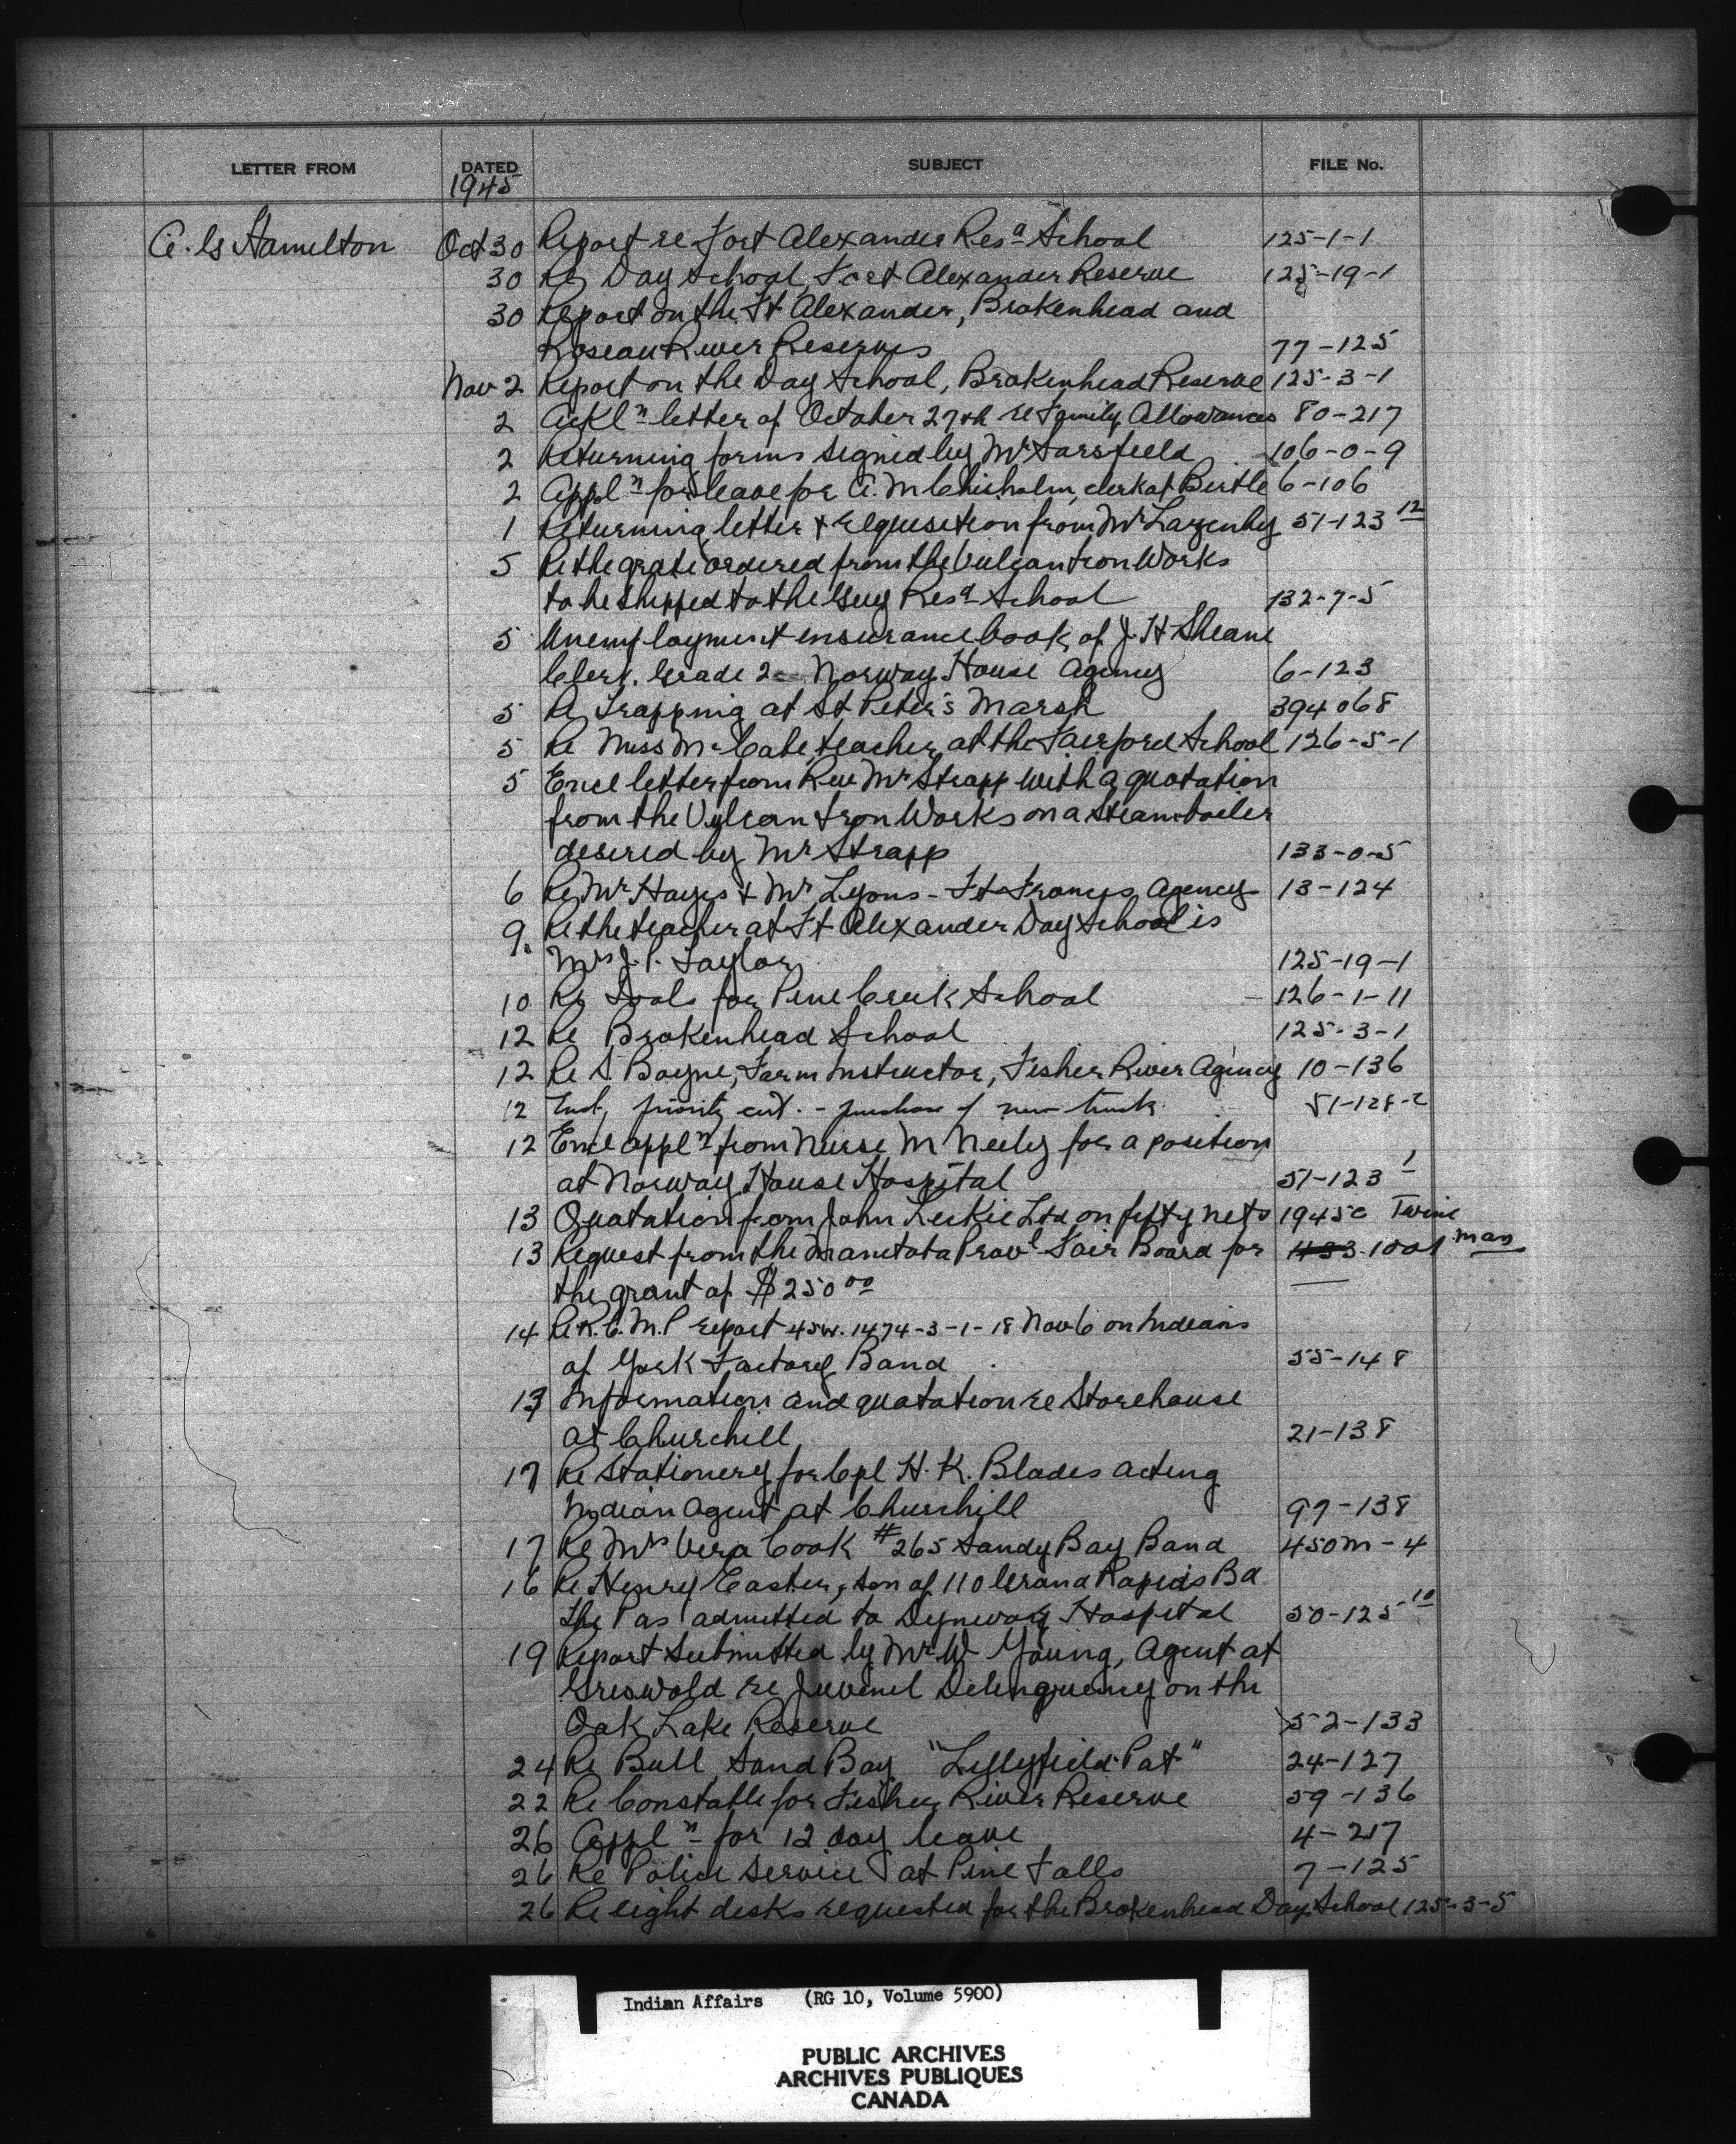 LETTER FROM DATED SUBJECT FILE No.
1945
A. G Hamilton Oct 30 Report re Fort Alexander Resª School 125-1-1
30 Re Day School, Fort Alexander Reserve 125-19-1
30 Report on the Ft Alexander, Brokenhead and
Roseau River Reserves 77-125
Nov 2 Report on the Day School, Brokenhead Reserve 125-3-1
2 Ackl n letter of October 27th re Family Allowances 80-217
2 Returning forms signed by Mr Sarsfield 106-0-9
2 Appl n for leave for A. M Chisholm, clerk at Birtle 6-106
1 Returning letter & requisition from Mr Lazenby 51-123 12
5 Re the grate ordered from the Vulcan Iron Works
to be shipped to the Guy Resª School 132-7-5
5 Unemployment insurance book of J. H Sheane
Clerk. Grade 2 Norway House Agency 6-123
5 Re Trapping at St Peter's Marsh 394068
5 Re Miss McCabe, teacher, at the Fairford School 126-5-1
5 Encl letter from Rev Mr Strapp with a quotation
from the Vulcan Iron Works on a steam boiler
desired by Mr Strapp 133-0-5
6 Re Mr Hayes & Mr Lyons - Ft Frances Agency 13-124
9. Re the teacher at Ft Alexander Day School is
Mrs J. P. Taylor 125-19-1
10 Re Tools for Pine Creek School - 126-1-11
12 Re Brokenhead School 125-3-1
12 Re S Bayne, Farm Instructor, Fisher River Agency 10-136
12 Encl, priority cert. - purchase of new truck 51-128-2
12 Encl appl n from Nurse M Neely for a position
at Norway House Hospital 51-123 1
13 Quotation from John Leckie Ltd on fifty nets 1945c Twine
13 Request from the Manitoba Prov l Fair Board for 433-1001 man
the grant of $250 00
14 Re R.C.M.P report 45W. 1474-3-1-18 Nov 6 on Indians
of York Factory Band. 55-148
13 Information and quotation re Storehouse
at Churchill 21-138
17 Re Stationery for Cpl H. K. Blades acting
Indian Agent at Churchill 97-138
17 Re Mrs Vera Cook #265 Sandy Bay Band 450M-4
16 Re Henry Easter, son of 110 Grand Rapids Bd
The Pas admitted to Dynevor Hospital 50-125 10
19 Report submitted by Mr W Young, Agent at
Griswold re Juvenil Delinquency on the
Oak Lake Reserve 52-133
24 Re Bull, Sand Bay "Lillyfield Pat" 24-127
22 Re Constable for Fisher River Reserve 59-136
26 Appl n for 12 day leave 4-217
26 Re Police Service at Pine Falls 7-125
26 Re eight desks requested for the Brokenhead Day School 125-3-5
Indian Affairs (RG 10, Volume 5900)
PUBLIC ARCHIVES
ARCHIVES PUBLIQUES
CANADA